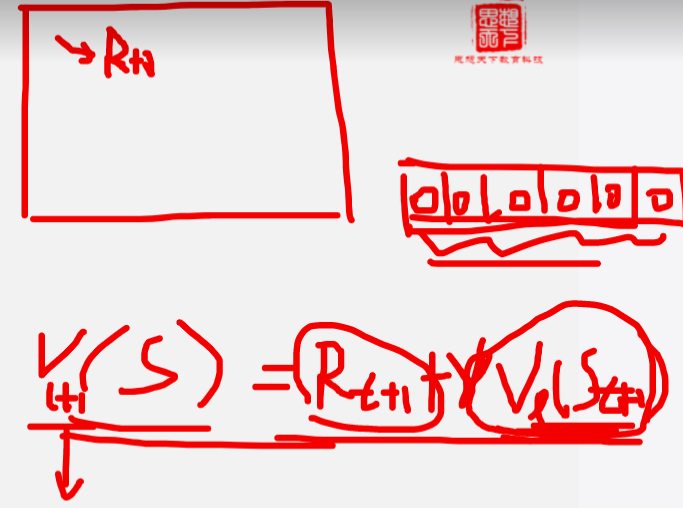 R_{t+1}
思想天下
思想天下教育科技
0 0 0 0 0 0
V_{t+1}(S) = R_{t+1} + γ V_t(S_{t+1})